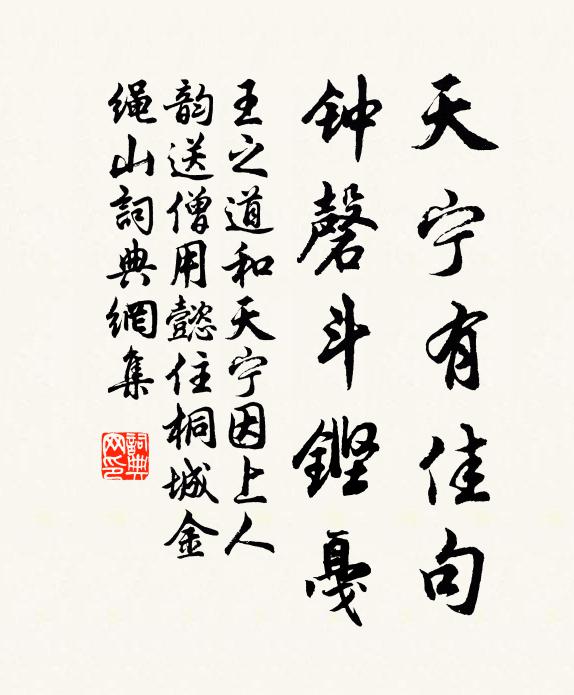 天宁有佳句
钟磬斗铿戛
王之道和天宁因上人
韵送僧用懿住桐城金
绳山詞典網集
詞典网印